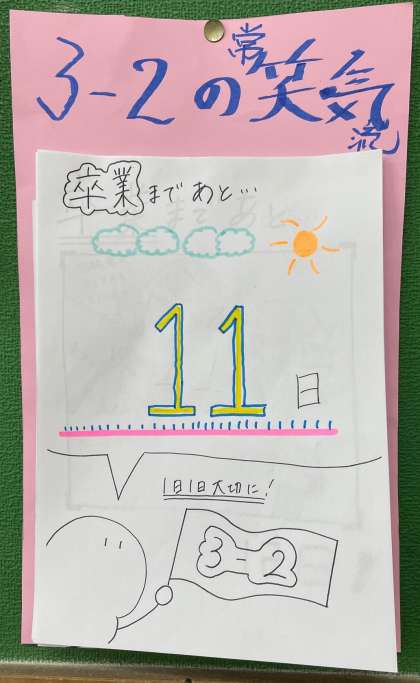 3-2の常笑気流
卒業まであと…
11日
1日1日大切に!
3-2